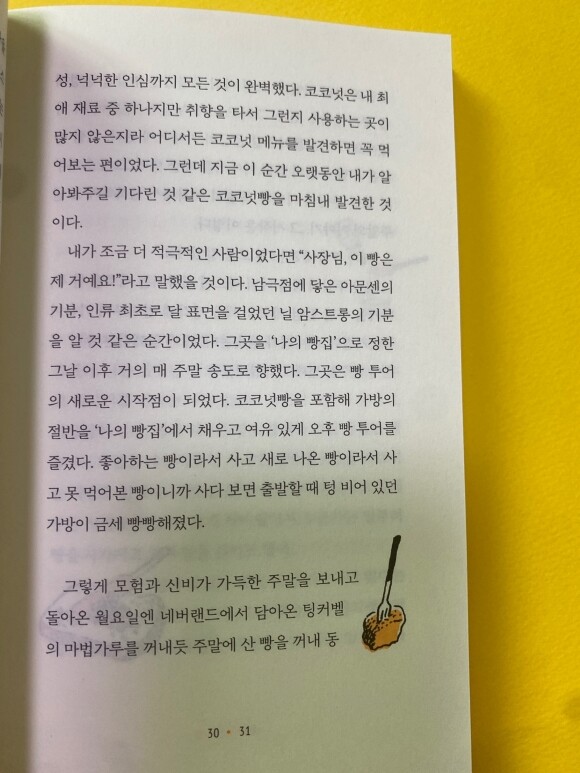 성, 넉넉한 인심까지 모든 것이 완벽했다. 코코넛은 내 최
애 재료 중 하나지만 취향을 타서 그런지 사용하는 곳이
많지 않은지라 어디서든 코코넛 메뉴를 발견하면 꼭 먹
어보는 편이었다. 그런데 지금 이 순간 오랫동안 내가 알
아봐주길 기다린 것 같은 코코넛빵을 마침내 발견한 것
이다.
내가 조금 더 적극적인 사람이었다면 “사장님, 이 빵은
제 거예요!”라고 말했을 것이다. 남극점에 닿은 아문센의
기분, 인류 최초로 달 표면을 걸었던 닐 암스트롱의 기분
을 알 것 같은 순간이었다. 그곳을 ‘나의 빵집’으로 정한
그날 이후 거의 매 주말 송도로 향했다. 그곳은 빵 투어
의 새로운 시작점이 되었다. 코코넛빵을 포함해 가방의
절반을 ‘나의 빵집’에서 채우고 여유 있게 오후 빵 투어를
즐겼다. 좋아하는 빵이라서 사고 새로 나온 빵이라서 사
고 못 먹어본 빵이니까 사다 보면 출발할 때 텅 비어 있던
가방이 금세 빵빵해졌다.
그렇게 모험과 신비가 가득한 주말을 보내고
돌아온 월요일엔 네버랜드에서 담아온 팅커벨
의 마법가루를 꺼내듯 주말에 산 빵을 꺼내 동
30 • 31